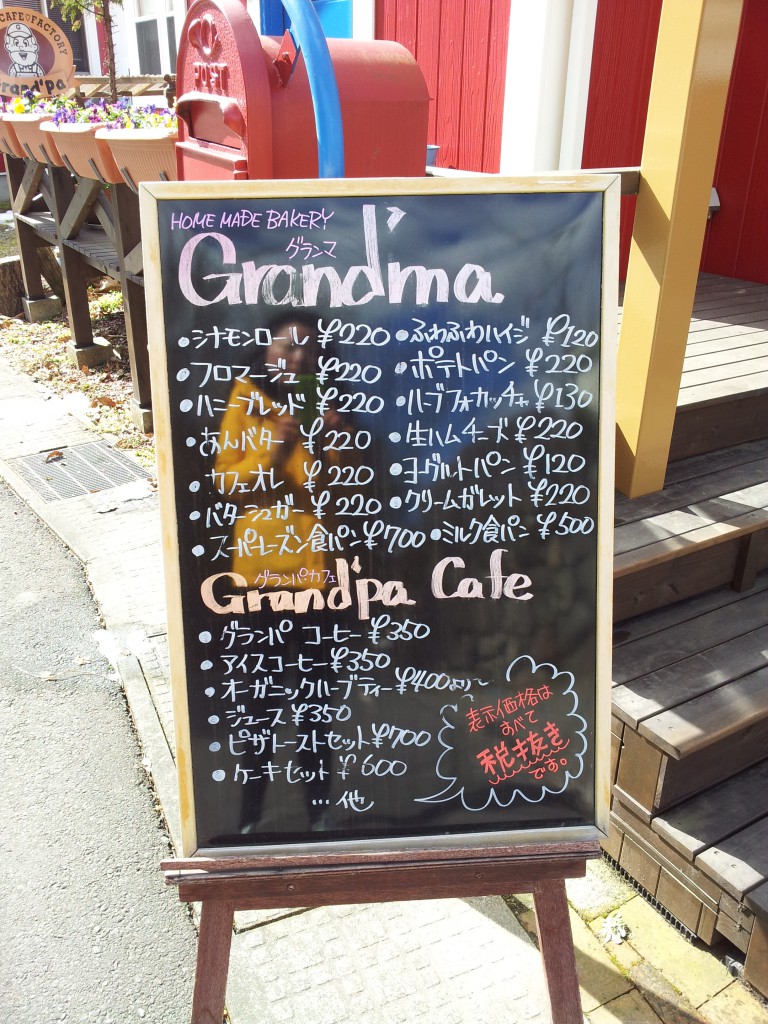 CAFE FACTORY
Grand'pa
POST
HOME MADE BAKERY
グランマ
Grand'ma
・シナモンロール ¥220 ・ふわふわハイジ ¥120
・フロマージュ ¥220 ・ポテトパン ¥220
・ハニーブレッド ¥220 ・ハーブフォカッチャ ¥130
・あんバター ¥220 ・生ハムチーズ ¥220
・カフェオレ ¥220 ・ヨーグルトパン ¥120
・バターシュガー ¥220 ・クリームガレット ¥220
・スーパーレーズン食パン ¥700 ・ミルク食パン ¥500
グランパ・カフェ
Grand'pa Cafe
・グランパ コーヒー ¥350
・アイスコーヒー ¥350
・オーガニックハーブティー ¥400より〜
・ジュース ¥350
・ピザトーストセット ¥700
・ケーキセット ¥600
…他
表示価格は
すべて
税抜き
です。